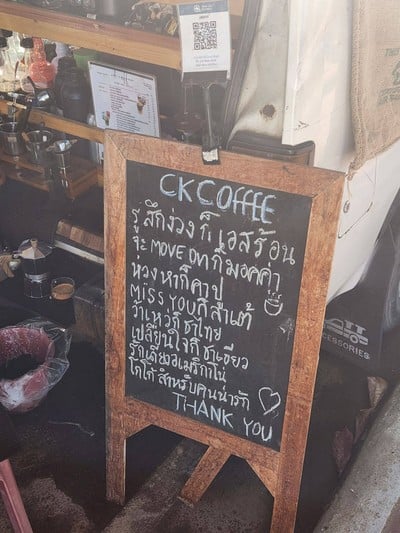 CKCOFFEE
รู้สึกง่วง ก็ เอสร้อน
จะ MOVE ON ก็มอคค่า
ห่วงหาก็คาปู
MISS YOU ก็ลาเต้
ว้าเหว่ก็ชาไทย
เปลี่ยนใจก็ชาเขียว
รักเดียวอเมริกาโน่
โกโก้สำหรับคนน่ารัก
THANK YOU